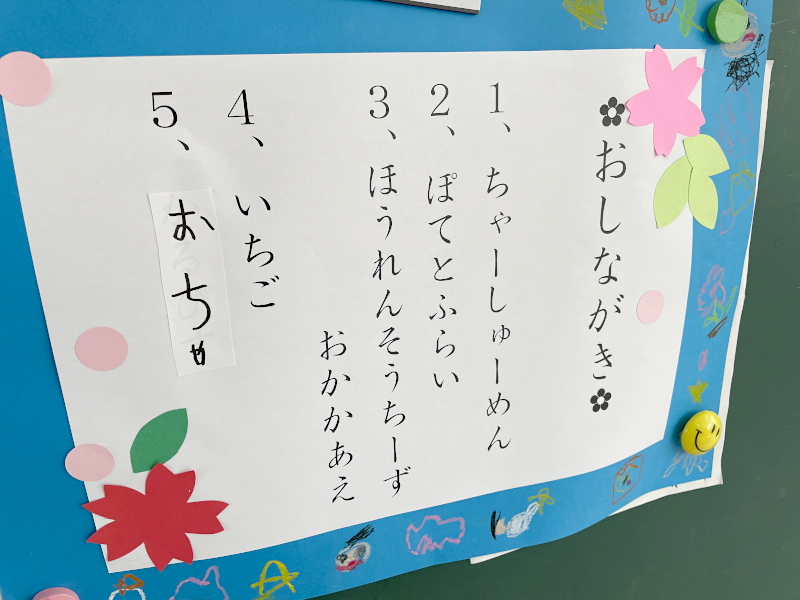 ✿おしながき✿
1、ちゃーしゅーめん
2、ぽてとふらい
3、ほうれんそうちーず
おかかあえ
4、いちご
5、おちゃ